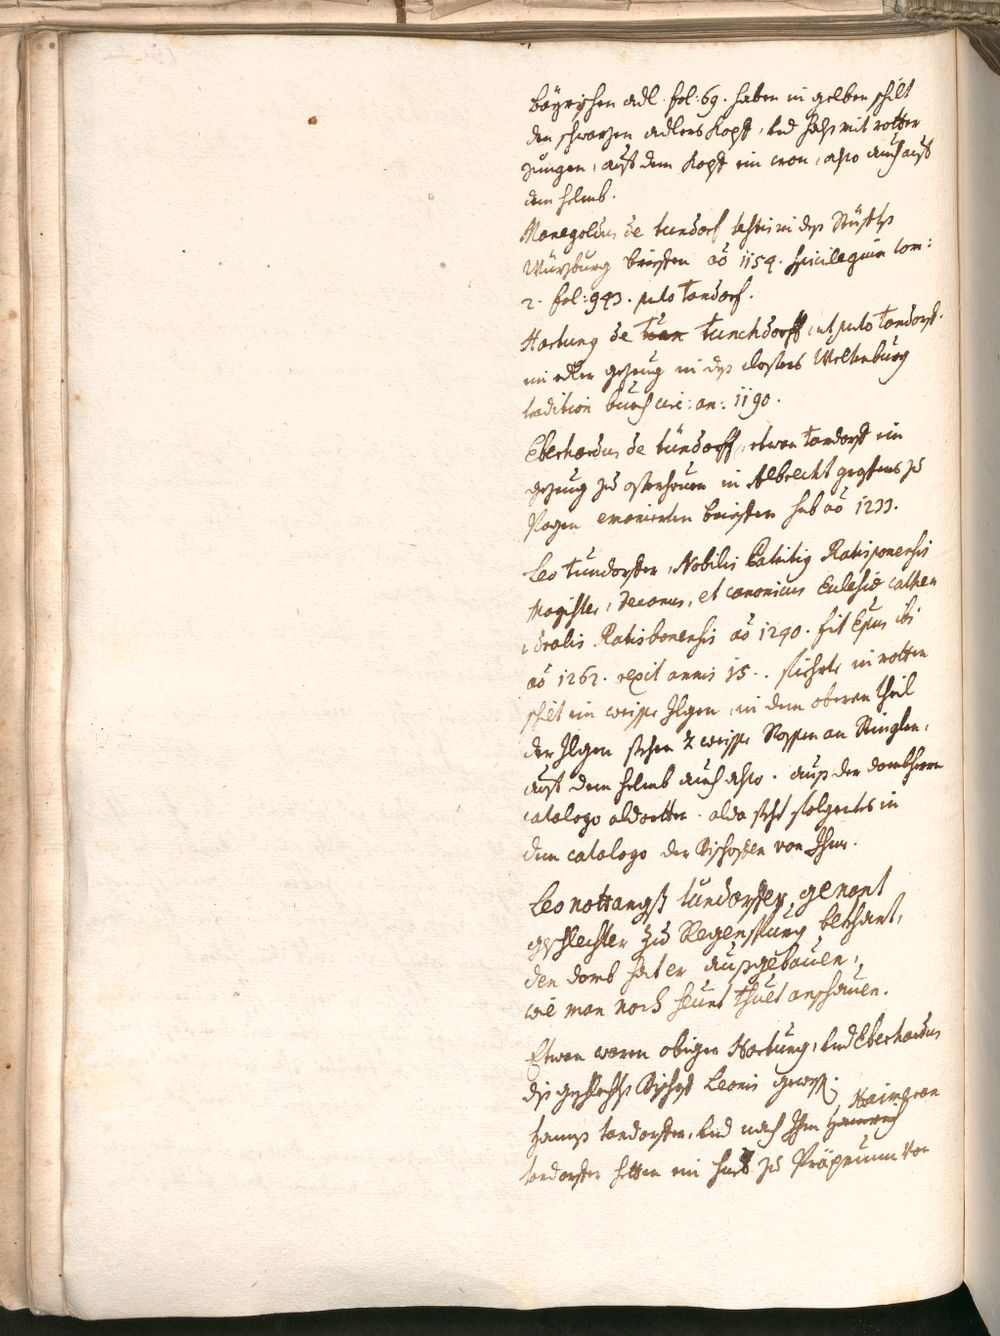 bäyrischen adl. fol: 69. haben in gelben schilt
den schwarzen adlers kopf, und hals mit rotter
zungen, auf dem kopf ein cron, also auch auf
dem helmb.
Manegoldus de tundorf testis in des Stüffts
Würzburg brieffen aõ 1154. spicilegium tom:
2. fol: 943. puto Tondorf.
Hartung de Tun Tunchdorff, ut puto Tondorf.
ein edler gezeug in des closters Weltenburg
tradition buech circ: an: 1190.
Eberhardus de tündorff, etwan Tondorf ein
gezeug zu osterhouen in Albrecht grafens zu
Pogen emanierten brieffen sub aõ 1233.
Leo Tundorffer, Nobilis Patritiq Ratisponensis
Magister, Decanus, et canonicus Eclesiæ cathe
dralis Ratisbonensis aõ 1240. fit Epus ibi
aõ 1262. rexit annis 15.. fiehrte in rotten
schilt ein weisse Ilgen, in dem oberen theil
der Ilgen sechen 2 weisse Rossen an Stinglen,
auf dem helmb auch also. aus der dombherrn
catalogo aldortten. alda steht folgentes in
dem catalogo der Bischoffen von Ihm.
Leo nottangst tundorffer, genant
geschlechter zu Regenspurg bekhant,
den domb hat er ausgebauen,
wie man noch heunt thuet anschauen.
Etwan waren obiger Hartung, und Eberhardus
des geschlechts Bischof Leonis gewest.
Haimeran
Hanns tondorffer, und nach Ihm Hainrich
tondorffer hetten ein hueb zu Präpruun von